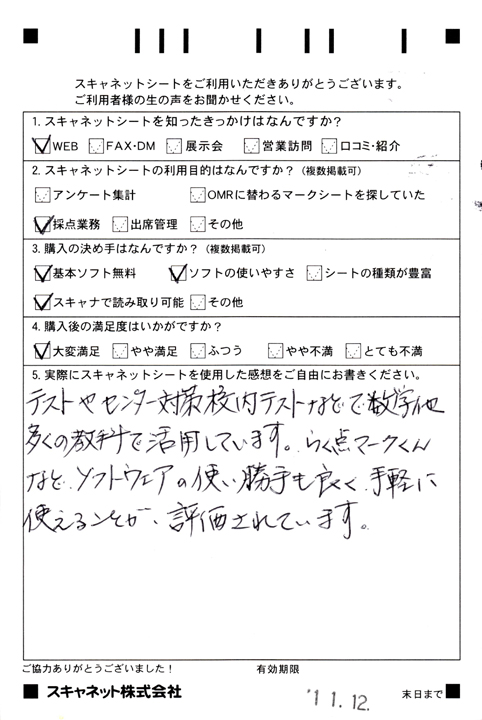 スキャネットシートをご利用いただきありがとうございます。
ご利用者様の生の声をお聞かせください。
1. スキャネットシートを知ったきっかけはなんですか?
WEB FAX・DM 展示会 営業訪問 口コミ・紹介
2. スキャネットシートの利用目的はなんですか? (複数掲載可)
アンケート集計 OMRに替わるマークシートを探していた
採点業務 出席管理 その他
3. 購入の決め手はなんですか? (複数掲載可)
基本ソフト無料 ソフトの使いやすさ シートの種類が豊富
スキャナで読み取り可能 その他
4. 購入後の満足度はいかがですか?
大変満足 やや満足 ふつう やや不満 とても不満
5. 実際にスキャネットシートを使用した感想をご自由にお書きください。
テストやセンター対策校内テストなどで数学他
多くの教科で活用しています。らく点マークくん
など、ソフトウェアの使い勝手も良く、手軽に
使えることが、評価されています。
ご協力ありがとうございました! 有効期限
スキャネット株式会社 '11.12. 末日まで